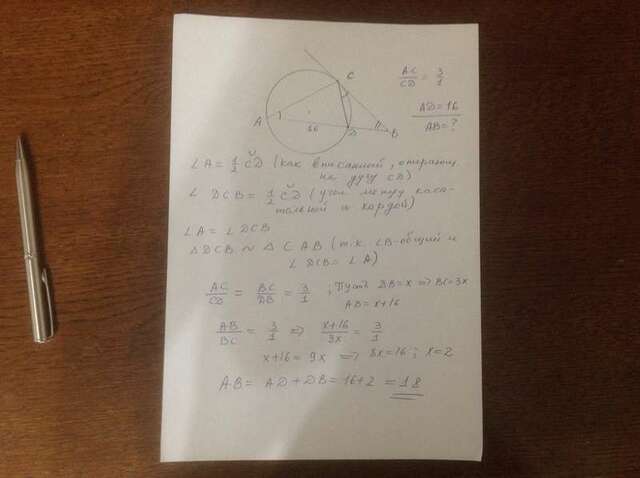 C
AC/CD = 3/1
AD=16
AB=?
A
16
D
B
∠A = 1/2 ◡CD (как вписанный, опирающ. на дугу CD)
∠ DCB = 1/2 ◡CD (угол между каса-
тельной и хордой)
∠A = ∠DCB
△DCB ~ △CAB (т.к. ∠B-общий и
∠ DCB = ∠A)
AC/CD = BC/DB = 3/1 ; Пусть DB=x => BC=3x
AB = x+16
AB/BC = 3/1 => x+16/3x = 3/1
x+16 = 9x => 8x=16 ; x=2
AB = AD+DB = 16+2 = 18